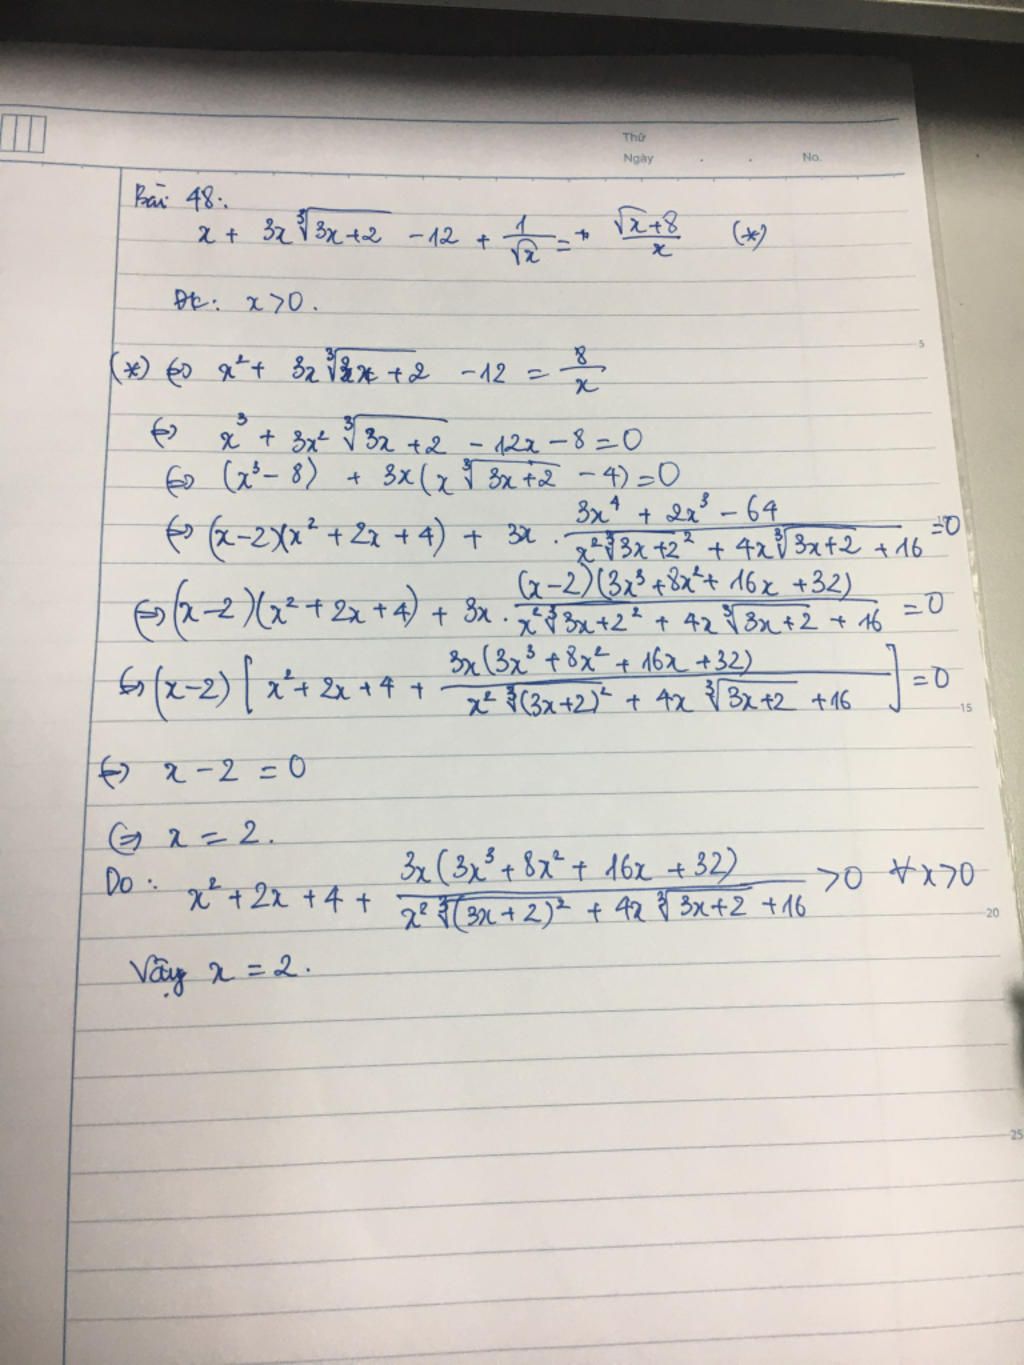 Thứ
Ngày . . No.
Bài 48:.
x + 3x∛(3x+2) - 12 + 1/√x = (√x+8)/x (*)
ĐK: x>0.
5
(*) ⇔ x² + 3x∛(3x+2) - 12 = 8/x
⇔ x³ + 3x² ∛(3x+2) - 12x - 8 = 0
⇔ (x³ - 8) + 3x(x ∛(3x+2) - 4) = 0
⇔ (x-2)(x² + 2x + 4) + 3x . (3x⁴ + 2x³ - 64)/(x² ∛(3x+2²) + 4x∛(3x+2) + 16) = 0
⇔ (x-2)(x² + 2x + 4) + 3x . (x-2)(3x³ + 8x² + 16x + 32)/(x² ∛(3x+2²) + 4x ∛(3x+2) + 16) = 0
⇔ (x-2) [ x² + 2x + 4 + 3x(3x³ + 8x² + 16x + 32)/(x² ∛((3x+2)²) + 4x ∛(3x+2) + 16) ] = 0
15
⇔ x - 2 = 0
⇔ x = 2.
Do : x² + 2x + 4 + 3x(3x³ + 8x² + 16x + 32)/(x² ∛((3x+2)²) + 4x ∛(3x+2) + 16) > 0 ∀x>0
20
Vậy x = 2.
25